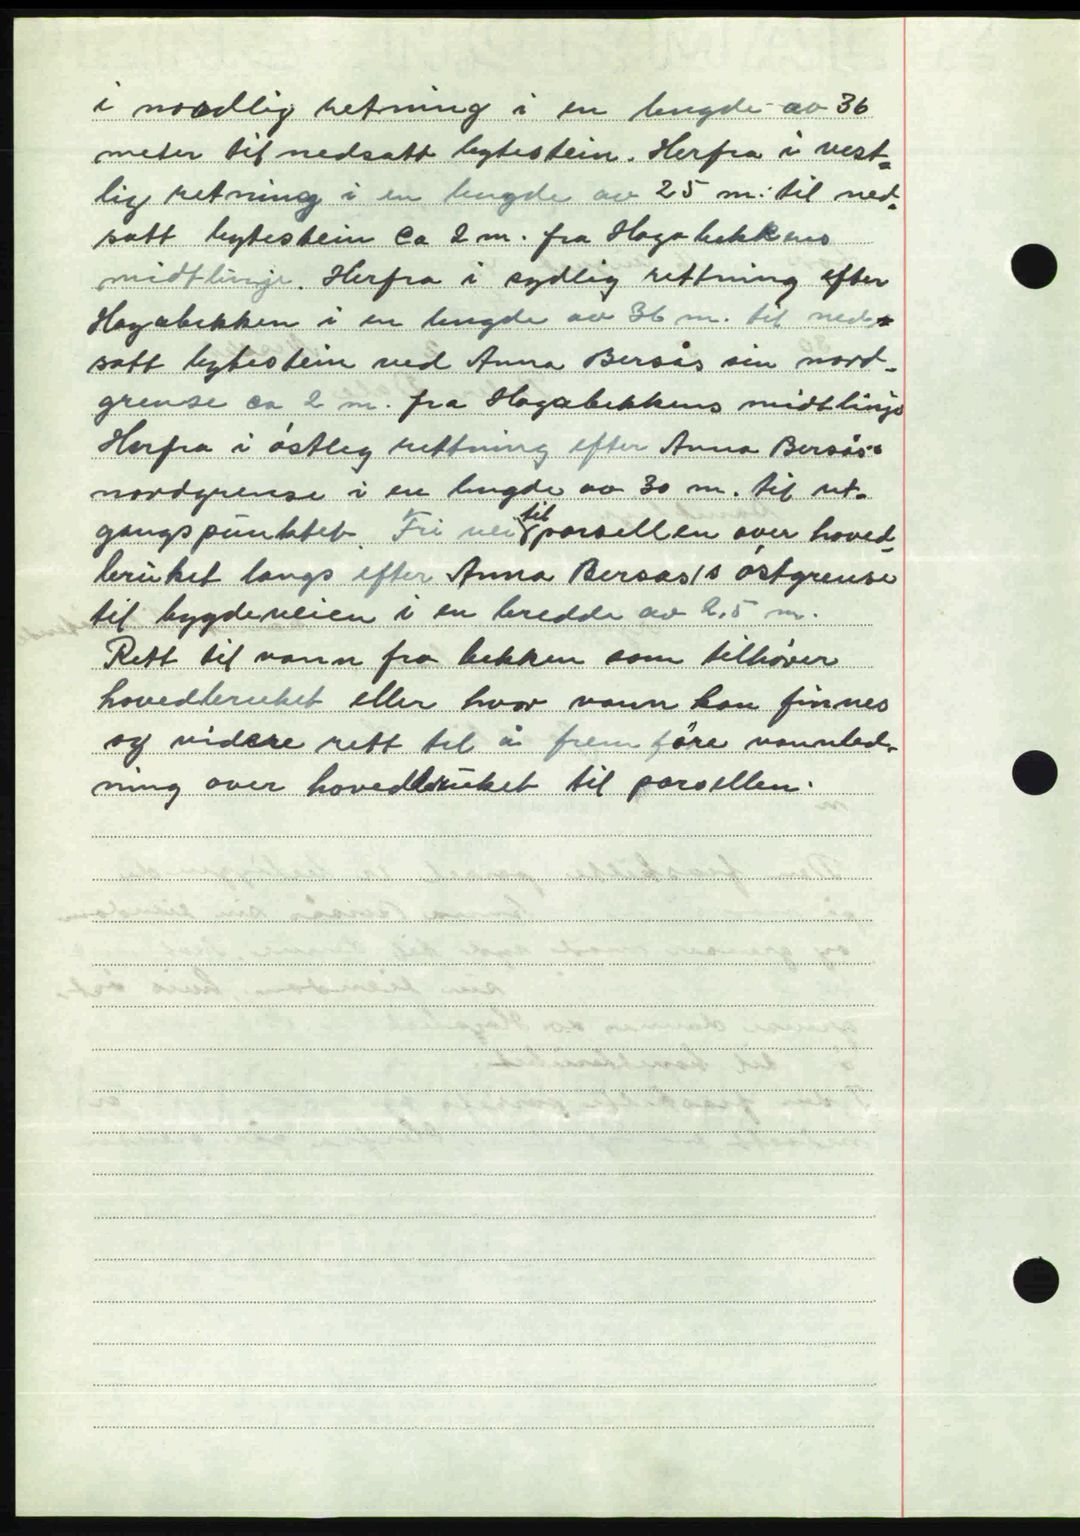 i nordlig retning i en lengde av 36
meter til nedsatt bytestein. Herfra i vest=
lig retning i en lengde av 25 m. til ned=
satt bytestein ca 2 m. fra Hagabekkens
midtlinje. Herfra i sydlig rettning efter
Hagabekken i en lengde av 36 m. til ned=
satt bytestein ved Anna Bersås sin nord-
grense ca 2 m. fra Hagabekkens midtlinje
Herfra i östleg rettning efter Anna Bersås's
nordgrense i en lengde av 30 m. til ut=
gangspunktet. Fri vei til parsellen over hoved=
bruket langs efter Anna Bersås's östgrense
til bygdeveien i en bredde av 2,5 m.
Rett til vann fra bekken som tilhörer
hovedbruket eller hvor vann kan finnes
og videre rett til å fremföre vannled-
ning over hovedbruket til parsellen.